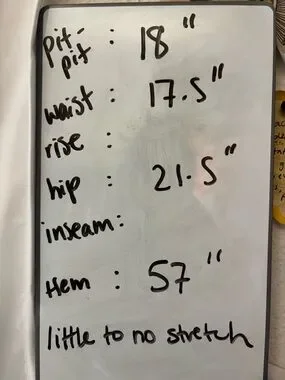 pit-
pit : 18"
waist : 17.5"
rise :
hip : 21.5"
inseam:
Hem : 57"
little to no stretch